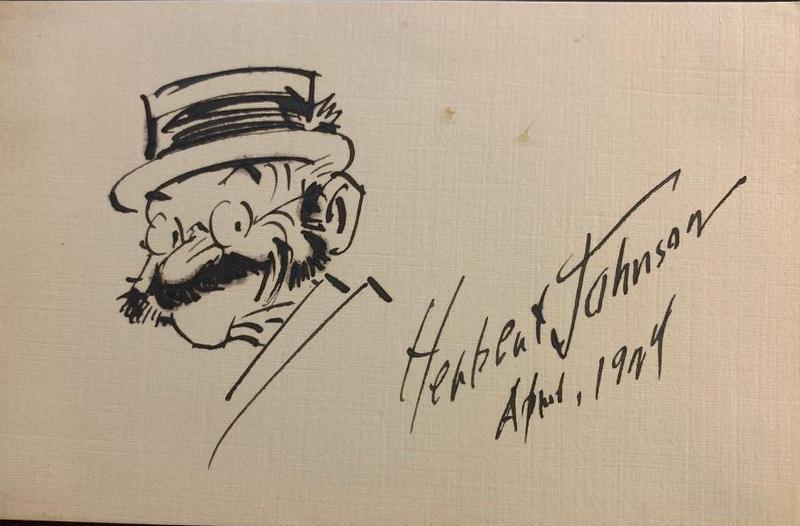 Herbert Johnson
April, 1924